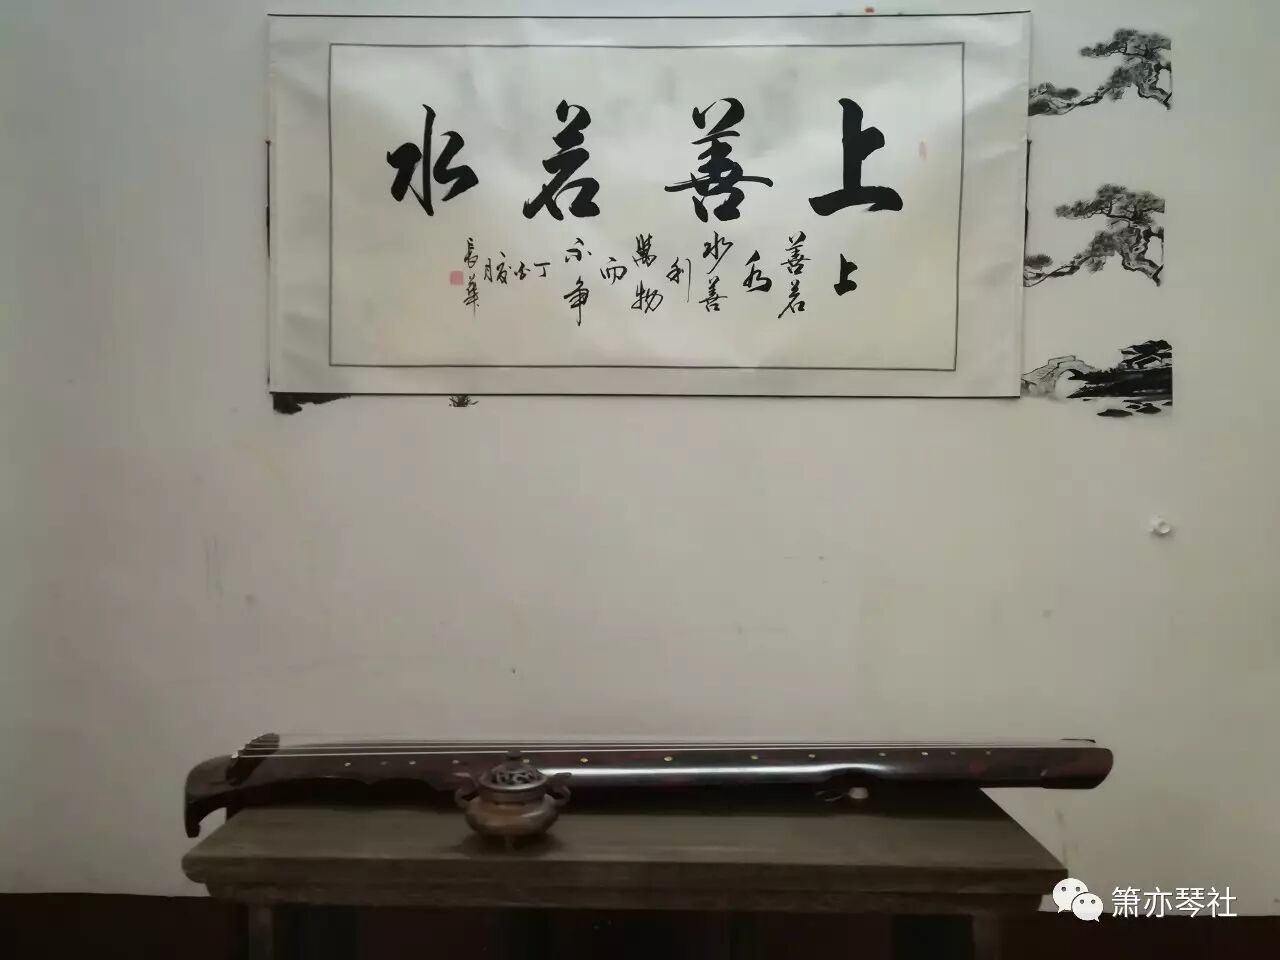 上善若水
上
善若
水
善
利
萬物
而
不争
丁酉
長華
箫亦琴社